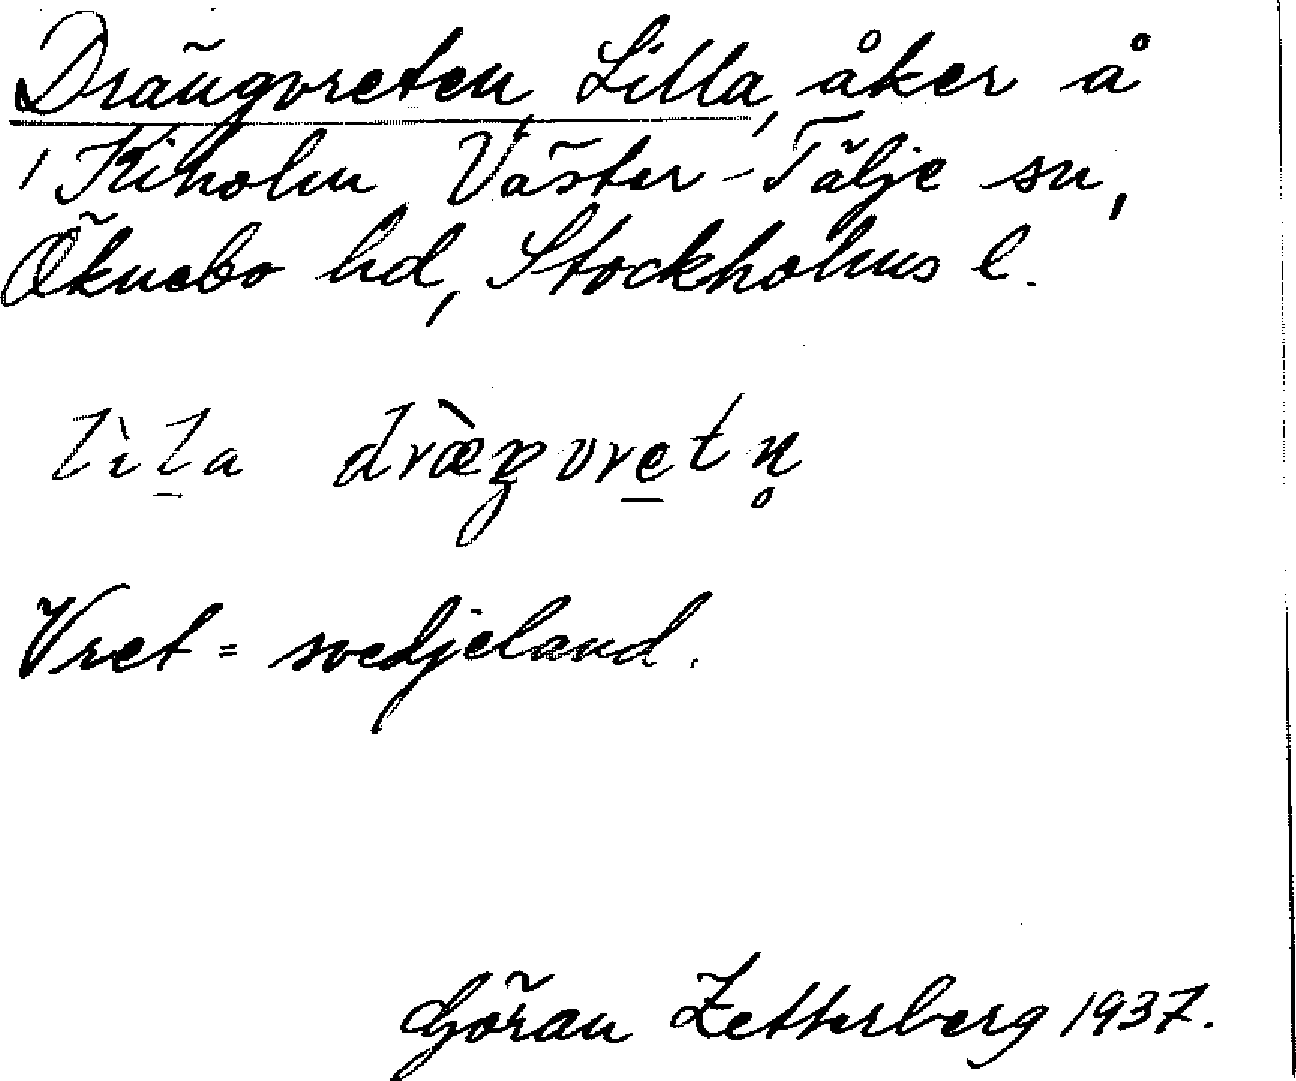 Drängvreten, Lilla, åker å
Kiholm Väster-Tälje sn,
Öknebo hd, Stockholms l.
lìla dræ̀ŋvretn̥
Vret = svedjeland.
Göran Zetterberg 1937.